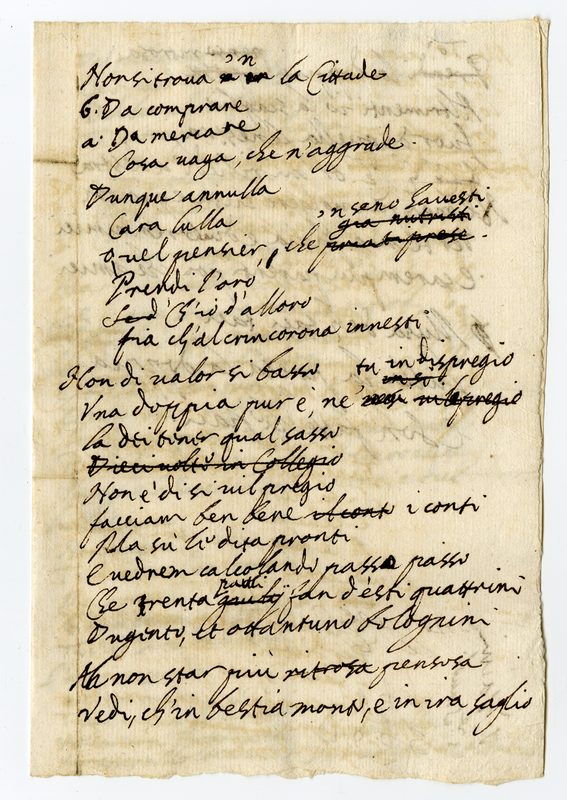 Non si trova 'n la Cittade
6. Da comprare
a. Da mercare
Cosa vaga, che n'aggrade.
Dunque annulla
Cara lulla
'n seno havesti
già nutristi
Quel pensier, che
Prendi l'oro
Ch'io d'alloro
fia ch'al crin corona innesti
Non di valor si basso tu in dispregio
Una doppia pur è, ne
la dei tener qual sasso
Dieci volte in Collegio
Non è di si vil pregio
facciam ben bene il conto i conti
Su le dita pronti
e vedrem calcolando passo passo
pauli
Che trenta giulij fan d'esti quattrini
Dugento, et ottantuno bolognini
Ah non star più ritrosa pensosa
Vedi, ch'in bestia monto, e in ira saglio